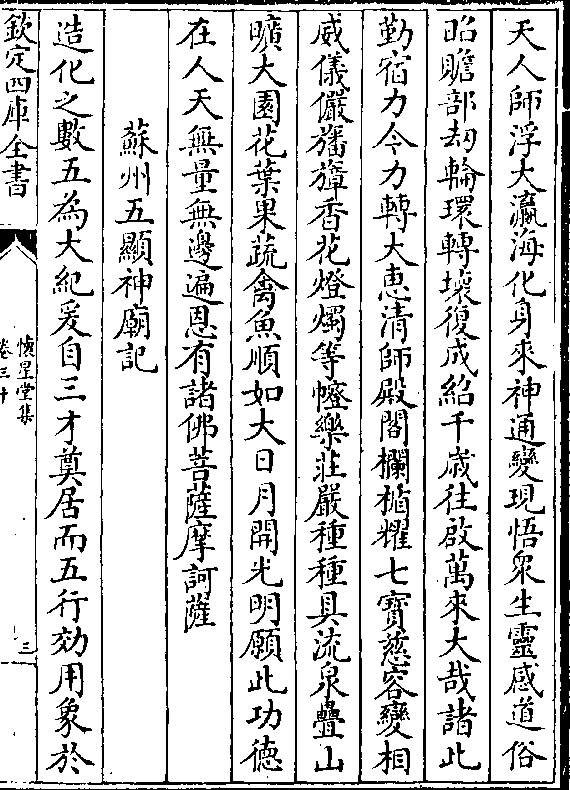 天人師浮大瀛海化身來神通變現悟衆生靈感道俗
昭贍部刼輪環轉壞復成紹千歳往啟萬來大哉諸此
勤宿力今力轉大惠清師殿閣欄楯耀七寳慈容變相
威儀儼旛幢香花燈燭等幢樂莊嚴種種具流泉疊山
曠大園花葉果蔬禽魚順如大日月開光明願此功德
在人天無量無邊遍恩有諸佛菩薩摩訶薩
蘇州五顯神廟記
造化之數五為大紀爰自三才奠居而五行効用象於
欽定四庫全書
懷星堂集
卷三十
三